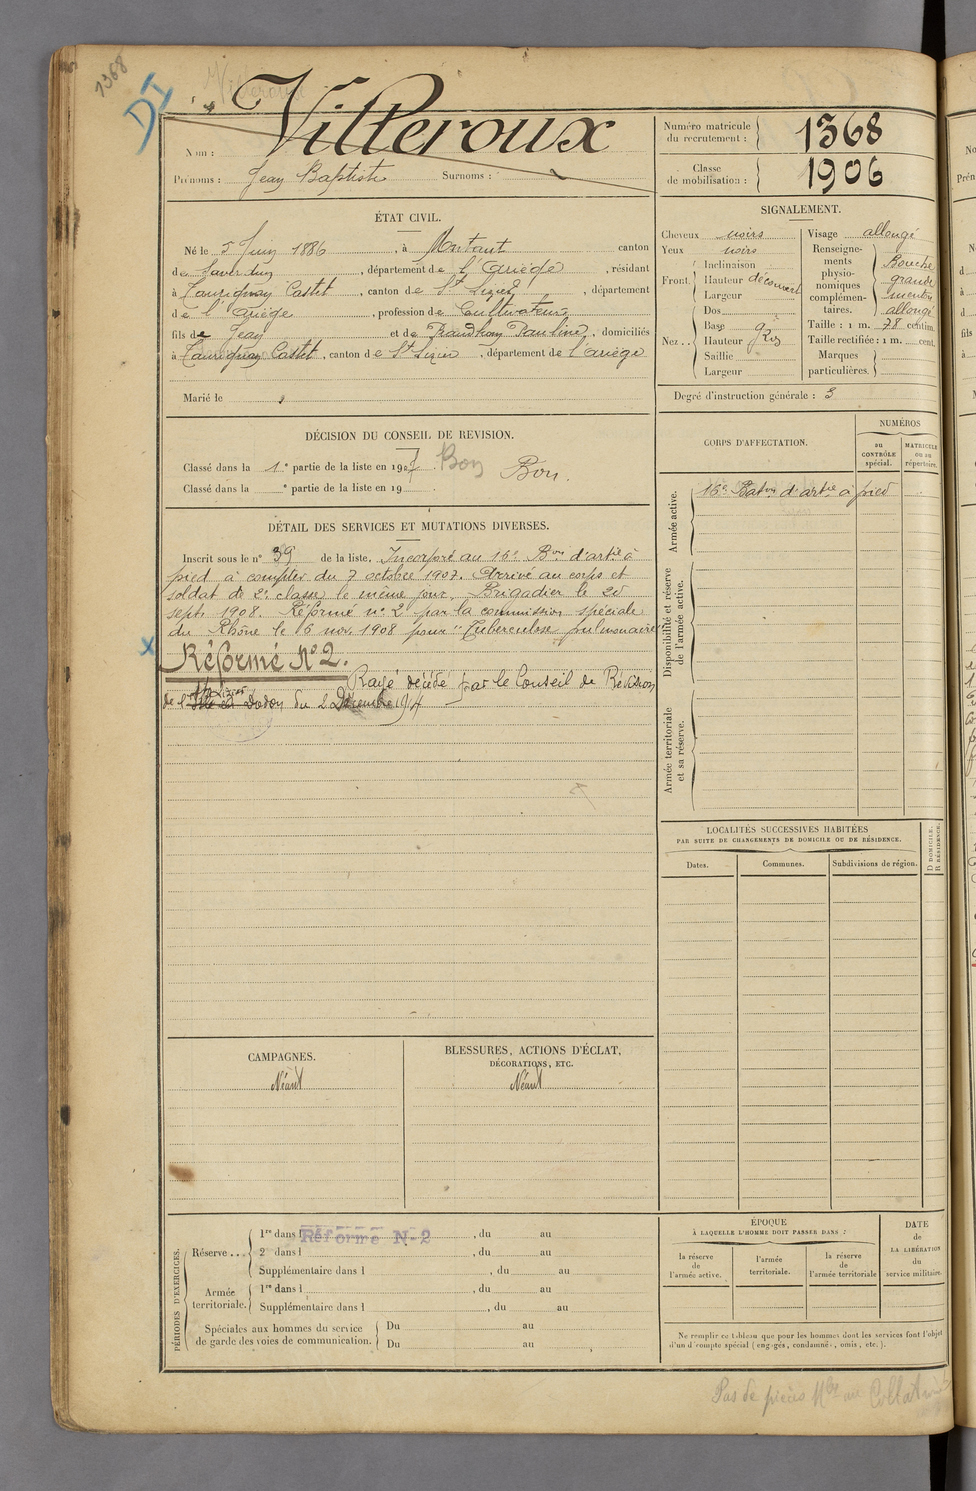 1368
DI
Villeroux
Nom : Villeroux
Prénoms : Jean Baptiste Surnoms :
Numéro matricule du recrutement : 1368
Classe de mobilisation : 1906
ÉTAT CIVIL.
Né le 5 Juin 1886, à Montaut canton
de Saverdun, département de l'Ariège, résidant
à Taurignan Castet, canton de St Lizier, département
de l'Ariège, profession de Cultivateur
fils de Jean et de Pauline, domiciliés
à Taurignan Castet, canton de St Lizier, département de l'Ariège
Marié le
SIGNALEMENT.
Cheveux noirs
Yeux noirs
Front. Inclinaison
Hauteur découvert
Largeur
Nez.. Dos
Base gros
Hauteur
Saillie
Largeur
Visage allongé
Renseignements physionomiques complémentaires. Bouche grande menton allongé
Taille : 1 m. 78 centim.
Taille rectifiée : 1 m. cent.
Marques particulières.
Degré d'instruction générale : 3
DÉCISION DU CONSEIL DE REVISION.
Classé dans la 1e partie de la liste en 1907 Bon Bon.
Classé dans la e partie de la liste en 19
DÉTAIL DES SERVICES ET MUTATIONS DIVERSES.
Inscrit sous le n° 39 de la liste. Incorporé au 16e Bon d'artie à
pied à compter du 7 octobre 1907. Arrivé au corps et
soldat de 2e classe le même jour. Brigadier le
sept. 1908. Réformé n° 2 par la commission spéciale
du Rhône le 6 nov. 1908 pour "Tuberculose pulmonaire"
Réformé N° 2.
Rayé décédé par le Conseil de Révision
de St Lizier du 2 Décembre 1914
CORPS D'AFFECTATION.
NUMÉROS
au CONTRÔLE spécial.
MATRICULE ou au répertoire.
Armée active.
16e Baton d'artie à pied
Disponibilité et réserve de l'armée active.
Armée territoriale et sa réserve.
LOCALITÉS SUCCESSIVES HABITÉES
PAR SUITE DE CHANGEMENTS DE DOMICILE OU DE RÉSIDENCE.
Dates.
Communes.
Subdivisions de région.
D DOMICILE. R RÉSIDENCE.
CAMPAGNES.
Néant
BLESSURES, ACTIONS D'ÉCLAT,
DÉCORATIONS, ETC.
Néant
PÉRIODES D'EXERCICES.
Réserve... 1re dans l Réforme N-2, du au
2e dans l, du au
Supplémentaire dans l, du au
Armée territoriale. 1re dans l, du au
Supplémentaire dans l, du au
Spéciales aux hommes du service de garde des voies de communication. Du au
Du au
ÉPOQUE
À LAQUELLE L'HOMME DOIT PASSER DANS :
la réserve de l'armée active.
l'armée territoriale.
la réserve de l'armée territoriale
DATE DE LA LIBÉRATION du service militaire.
Ne remplir ce tableau que pour les hommes dont les services font l'objet
d'un décompte spécial (engagés, condamnés, omis, etc.).
Pas de pièces